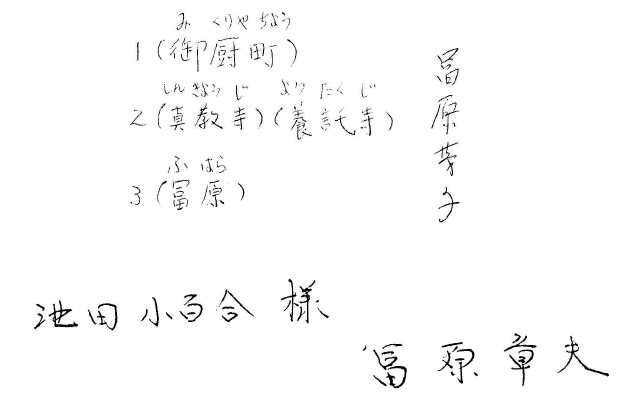 み くりや ちょう
1(御厨町)
しんきょうじ ようたくじ
2(真教寺)(養託寺)
ふ はら
3(冨原)
冨原芽子
池田小百合 様
冨原章夫